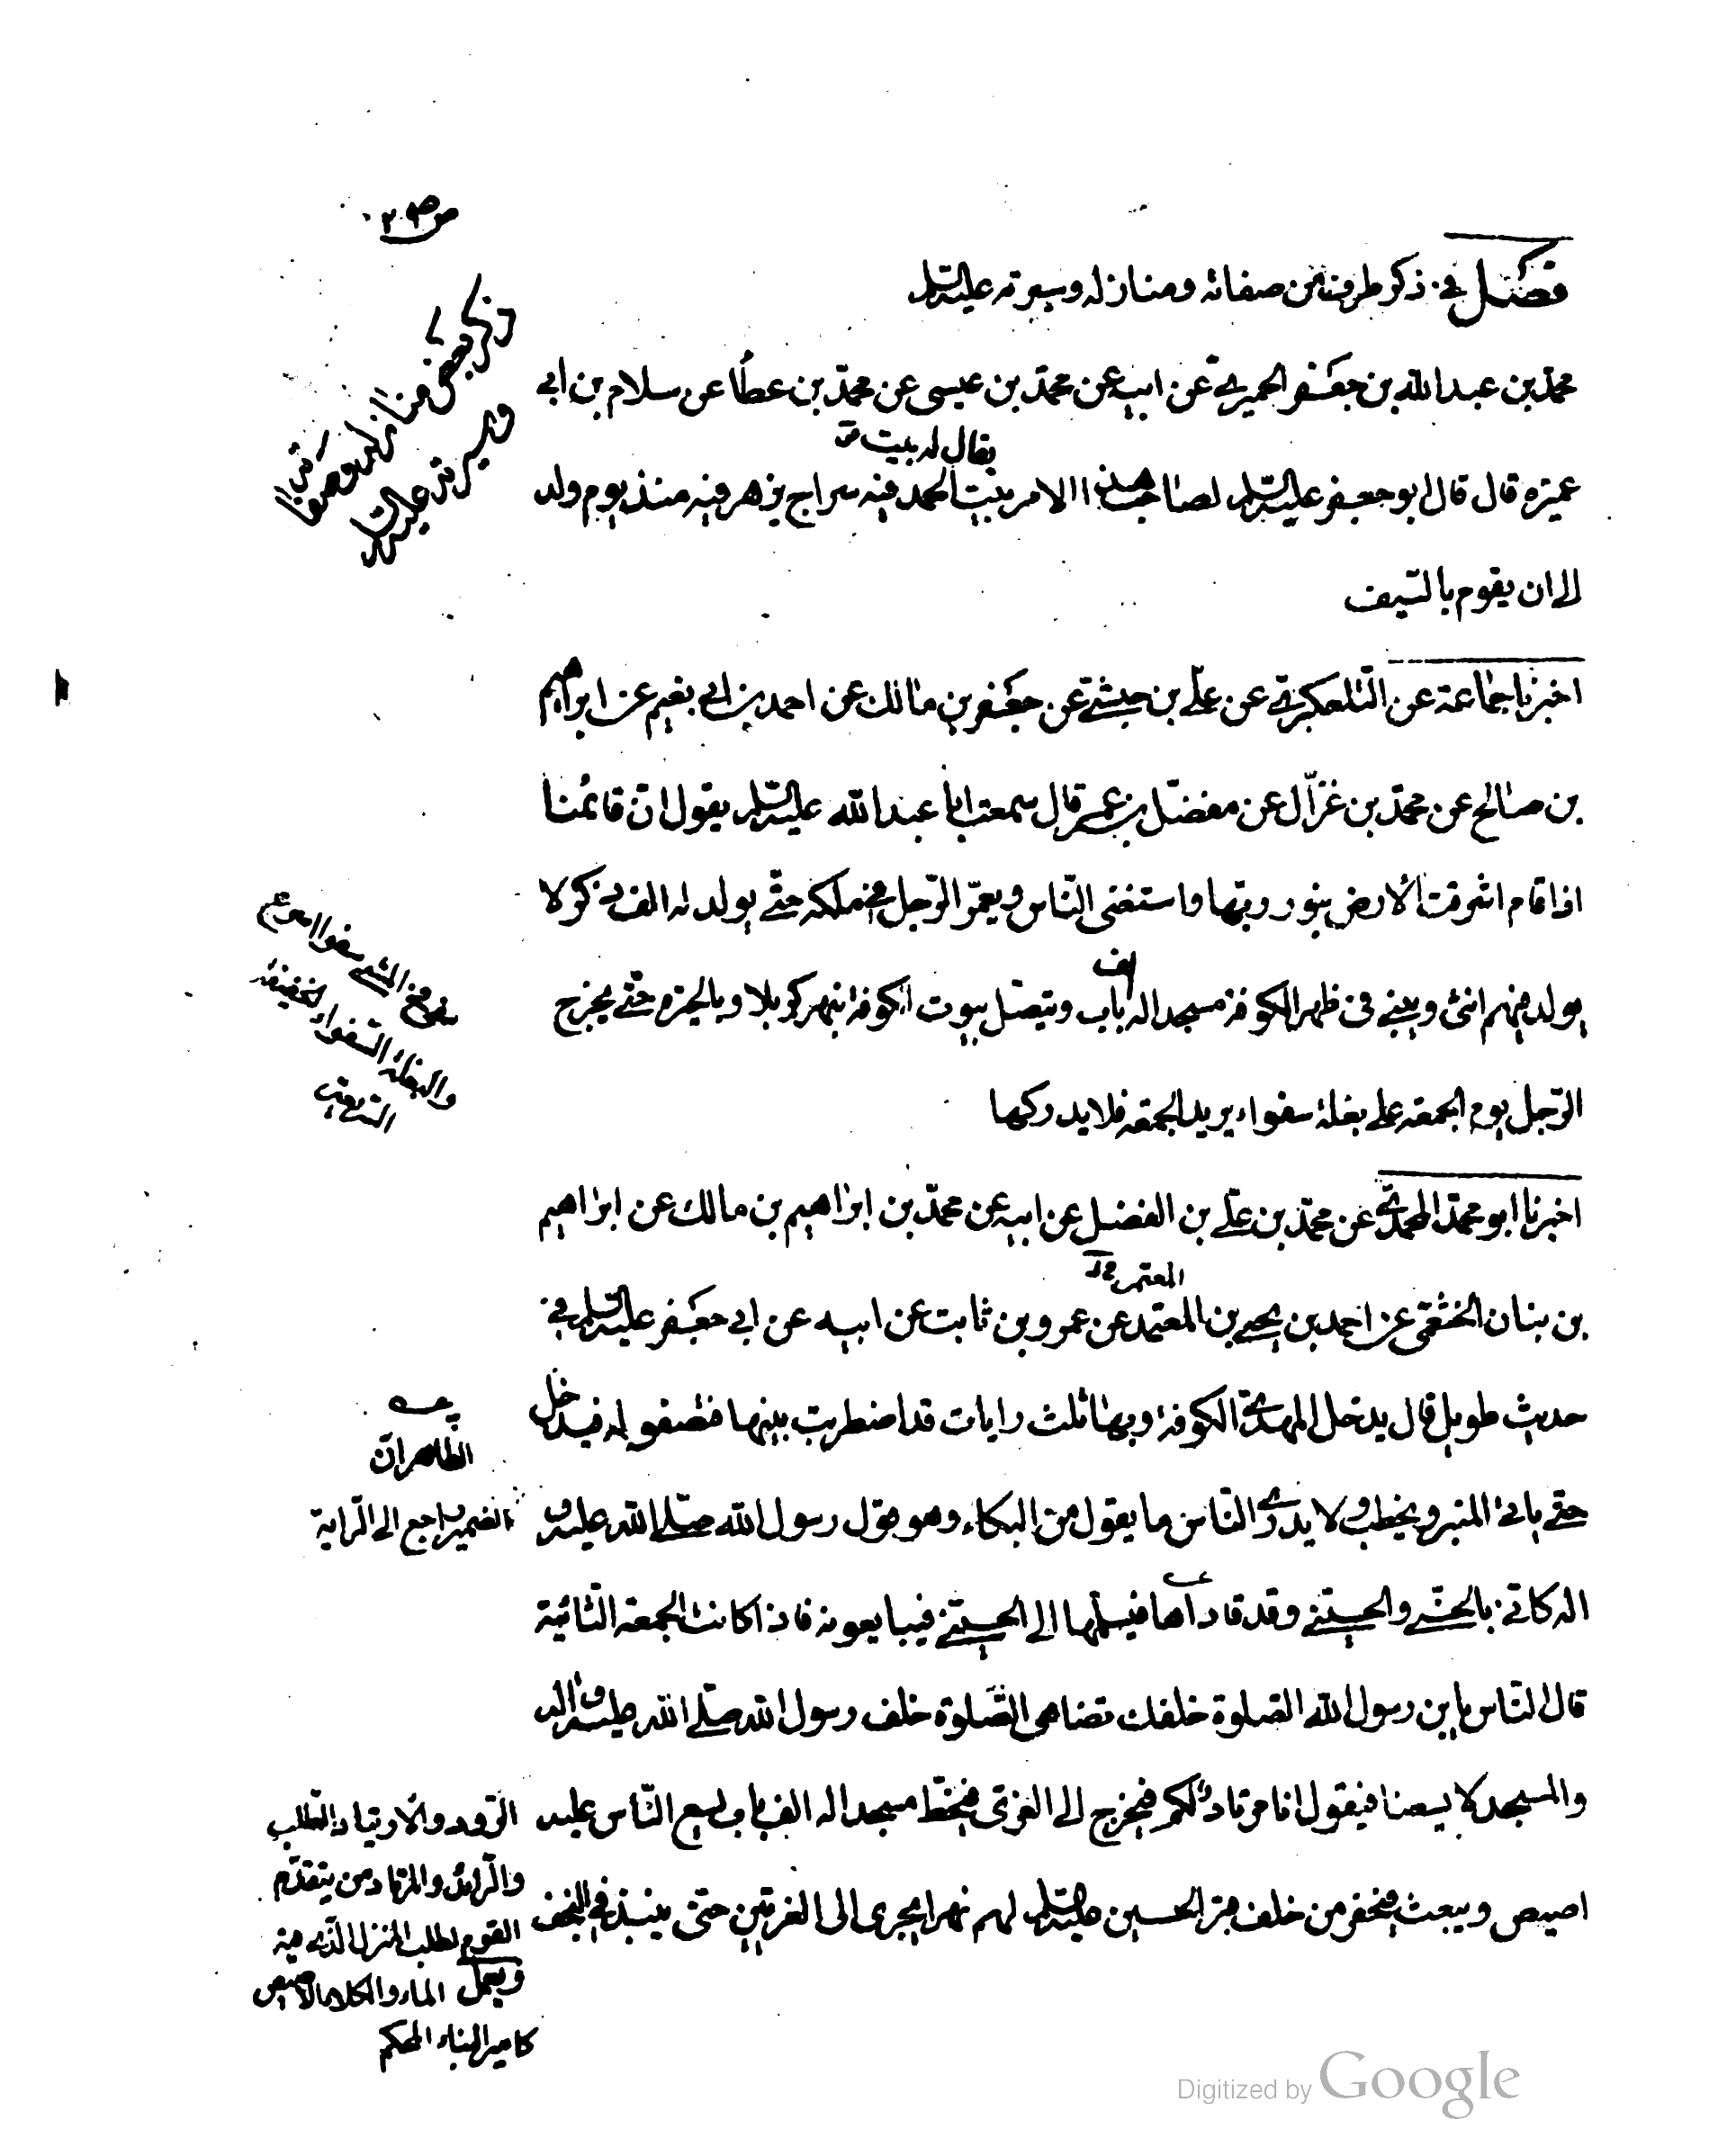 فصل في ذكر طرف من صفاته ومنازله وسيرته عليه السلم
محمد بن عبدالله بن جعفر الحميري عن ابيه عن محمد بن عيسى عن محمد بن عطا عن سلام بن ابي
يقال له بيت
عميرة قال قال ابو جعفر عليه السلم لصاحب هذا الامر بيت الحمد فيه سراج يزهر فيه منذ يوم ولد
الى ان يقوم بالسيف
اخبرنا جماعة عن التلعكبري عن علي بن حبشي عن جعفر بن مالك عن احمد بن ابي نعيم عن ابراهيم
بن صالح عن محمد بن غزال عن مفضل بن عمر قال سمعت ابا عبد الله عليه السلم يقول ان قائمنا
اذا قام اشرقت الارض بنور ربها واستغنى الناس ويعمر الرجل في ملكه حتى يولد له الف ذكر لا
الف
يولد فيهم انثى ويبني في ظهر الكوفة مسجدا له باب ويتصل بيوت الكوفة بنهر كربلا وبالحيرة حتى يخرج
الرجل يوم الجمعة على بغلة سفواء يريد الجمعة فلا يدركها
والبغلة السفواء الخفيفة
السريعة
اخبرنا ابو محمد المحمدي عن محمد بن علي بن الفضل عن ابيه عن محمد بن ابراهيم بن مالك عن ابراهيم
المعتمر
بن بنان الخثعمي عن احمد بن يحيى بن المعتمد عن عمرو بن ثابت عن ابيه عن ابي جعفر عليه السلم في
حديث طويل قال يدخل المهدي الكوفة وبها ثلث رايات قد اضطربت بينها فتصفو له فيدخل
حتى ياتي المنبر ويخطب ولا يدري الناس ما يقول من البكاء وهو قول رسول الله صلى الله عليه و
الظاهر ان
الضمير راجع الى الراية
اله كاني بالحسني والحسيني وقد قاداها فيسلمها الى الحسيني فيبايعونه فاذا كانت الجمعة الثانية
قال الناس يابن رسول الله الصلوة خلفك تضاهي الصلوة خلف رسول الله صلى الله عليه واله
والمسجد لا يسعنا فيقول انا مرتاد لكم فيخرج الى الغري فيخط مسجدا له الف باب يسع الناس عليه
اصيص ويبعث فيحفر من خلف قبر الحسين عليه السلم لهم نهرا يجري الى الغريين حتى ينبذ في النجف
الرود والارتياد الطلب
والرائد والمرتاد من يتقدم
القوم لطلب المنزل الذي فيه
الماء والكلاء والاصيص
ويعمل
كامير البناء المحكم
Digitized by Google